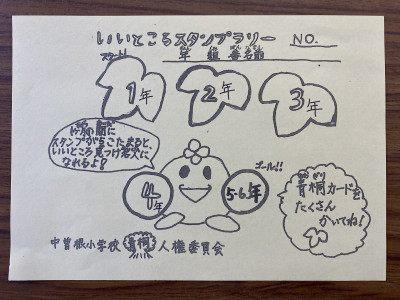 いいところスタンプラリー NO.
スタート!
年 組 番名前
1年 2年 3年
1ヶ月の間に
スタンプが5こたまると、
いいところ見つけ名人に
なれるよ!
ゴール!!
4年 5-6年
青桐カードを
たくさん
かいてね!
中曽根小学校 青桐 人権委員会